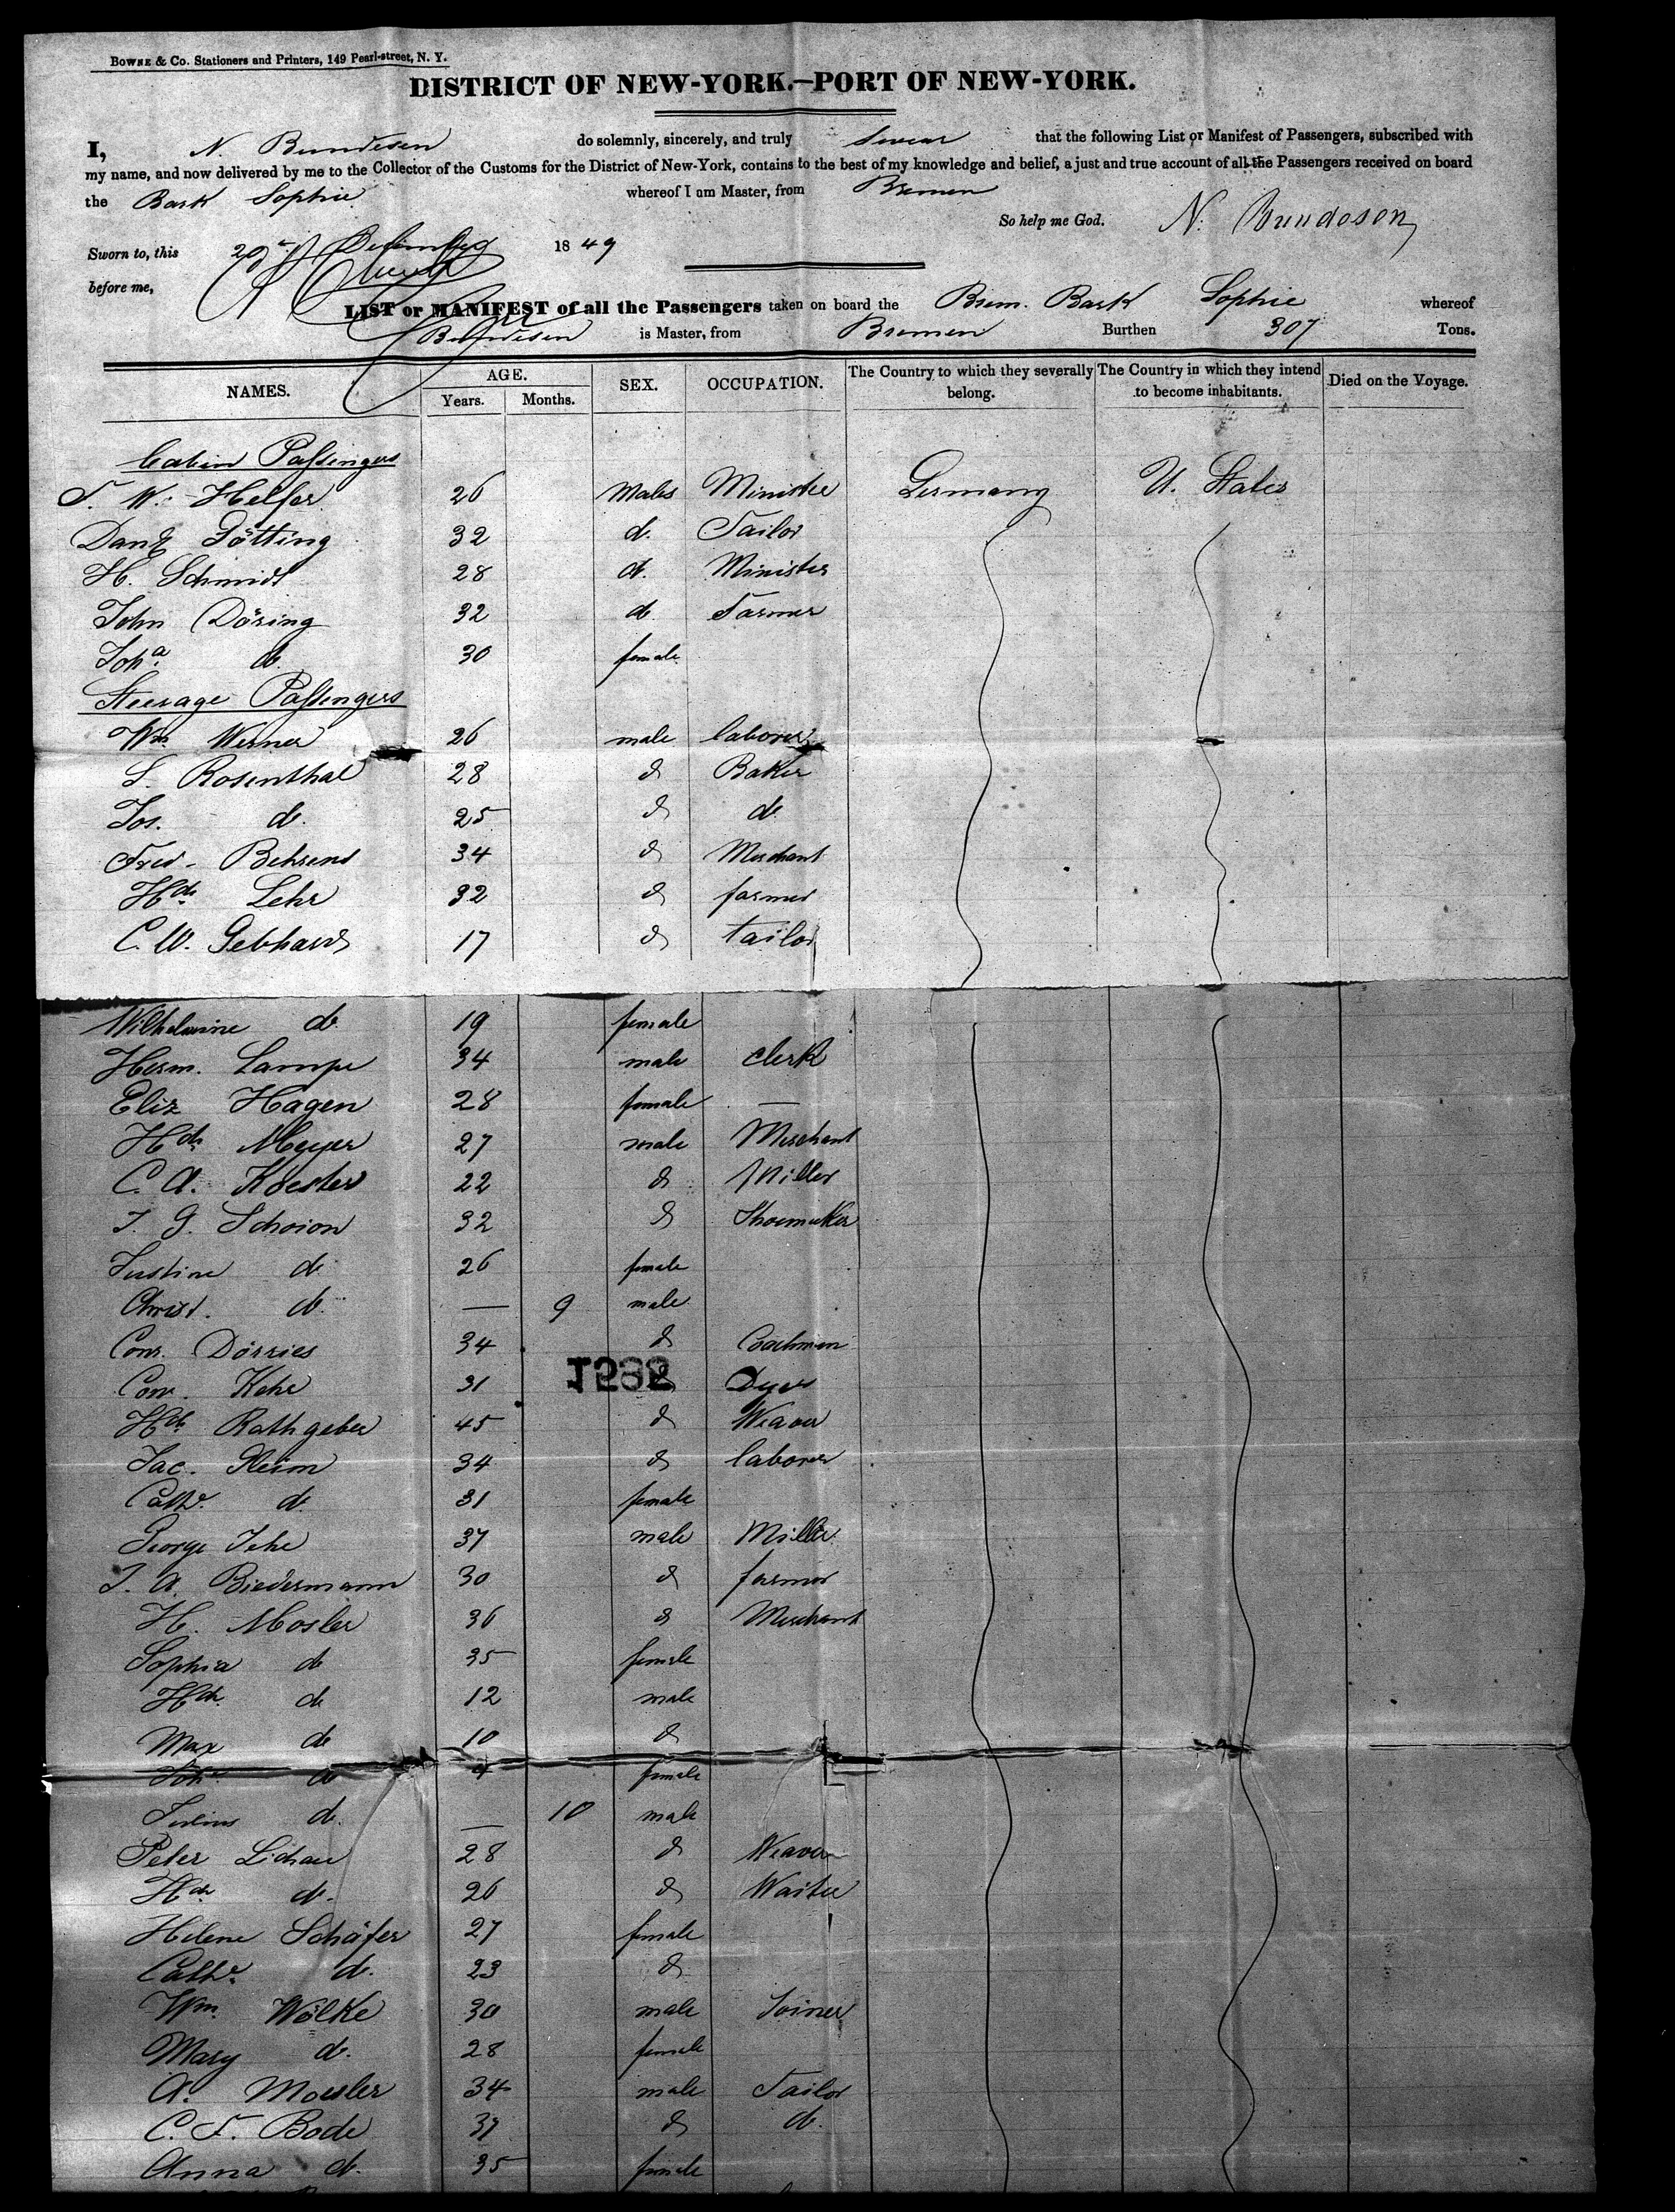 BOWNE & CO. Stationers and Printers, 149 Pearl-street, N. Y.
DISTRICT OF NEW-YORK.—PORT OF NEW-YORK.
I, N. Bundesen do solemnly, sincerely, and truly swear that the following List or Manifest of Passengers, subscribed with
my name, and now delivered by me to the Collector of the Customs for the District of New-York, contains to the best of my knowledge and belief, a just and true account of all the Passengers received on board
the Bark Sophie whereof I am Master, from Bremen
So help me God. N. Bundesen
Sworn to, this 29th December 1849
before me,
LIST or MANIFEST of all the Passengers taken on board the Brem. Bark Sophie whereof
Bundesen is Master, from Bremen Burthen 307 Tons.
NAMES. AGE. Years. Months. SEX. OCCUPATION. The Country to which they severally belong. The Country in which they intend to become inhabitants. Died on the Voyage.
Cabin Passengers
F. W. Helfer 26 Males Minister Germany U. States
Götting 32 do. Tailor
H. Schmidt 28 do. Minister
John Döring 32 do Farmer
Joha. do. 30 female
Steerage Passengers
Wm. Werner 26 male laborer
S. Rosenthal 28 do Baker
Jos. do. 25 do do
Fred. Behrens 34 do Merchant
Hch. Lehr 32 do farmer
C. W. Gebhard 17 do tailor
Wilhelmine do. 19 female
Herm. Lampe 34 male clerk
Eliz Hagen 28 female —
Hch. Meyer 27 male Merchant
C. A. Koester 22 do Miller
J. G. Schoion 32 do Shoemaker
Justine do 26 female
Christ. do. — 9 male
Conr. Dörries 34 do Coachman
Con. Kehr 31 do Dyer
Hch. Rathgeber 45 do Weaver
Jac. Kleim 34 do laborer
Cathe. do 31 female
George Jehe 37 male Miller
J. A. Biedermann 30 do farmer
H. Mosler 36 do Merchant
Sophia do 35 female
Hch. do 12 male
Max do 10 do
do female
Julius do. — 10 male
Peter Lichau 28 do Weaver
Hch. do. 26 do Waiter
Helene Schäfer 27 female
Cathe. do. 23 do
Wm. Wölke 30 male Joiner
Mary do. 28 female
A. Moesler 34 male Tailor
C. F. Bode 37 do do.
Anna do. 35 female